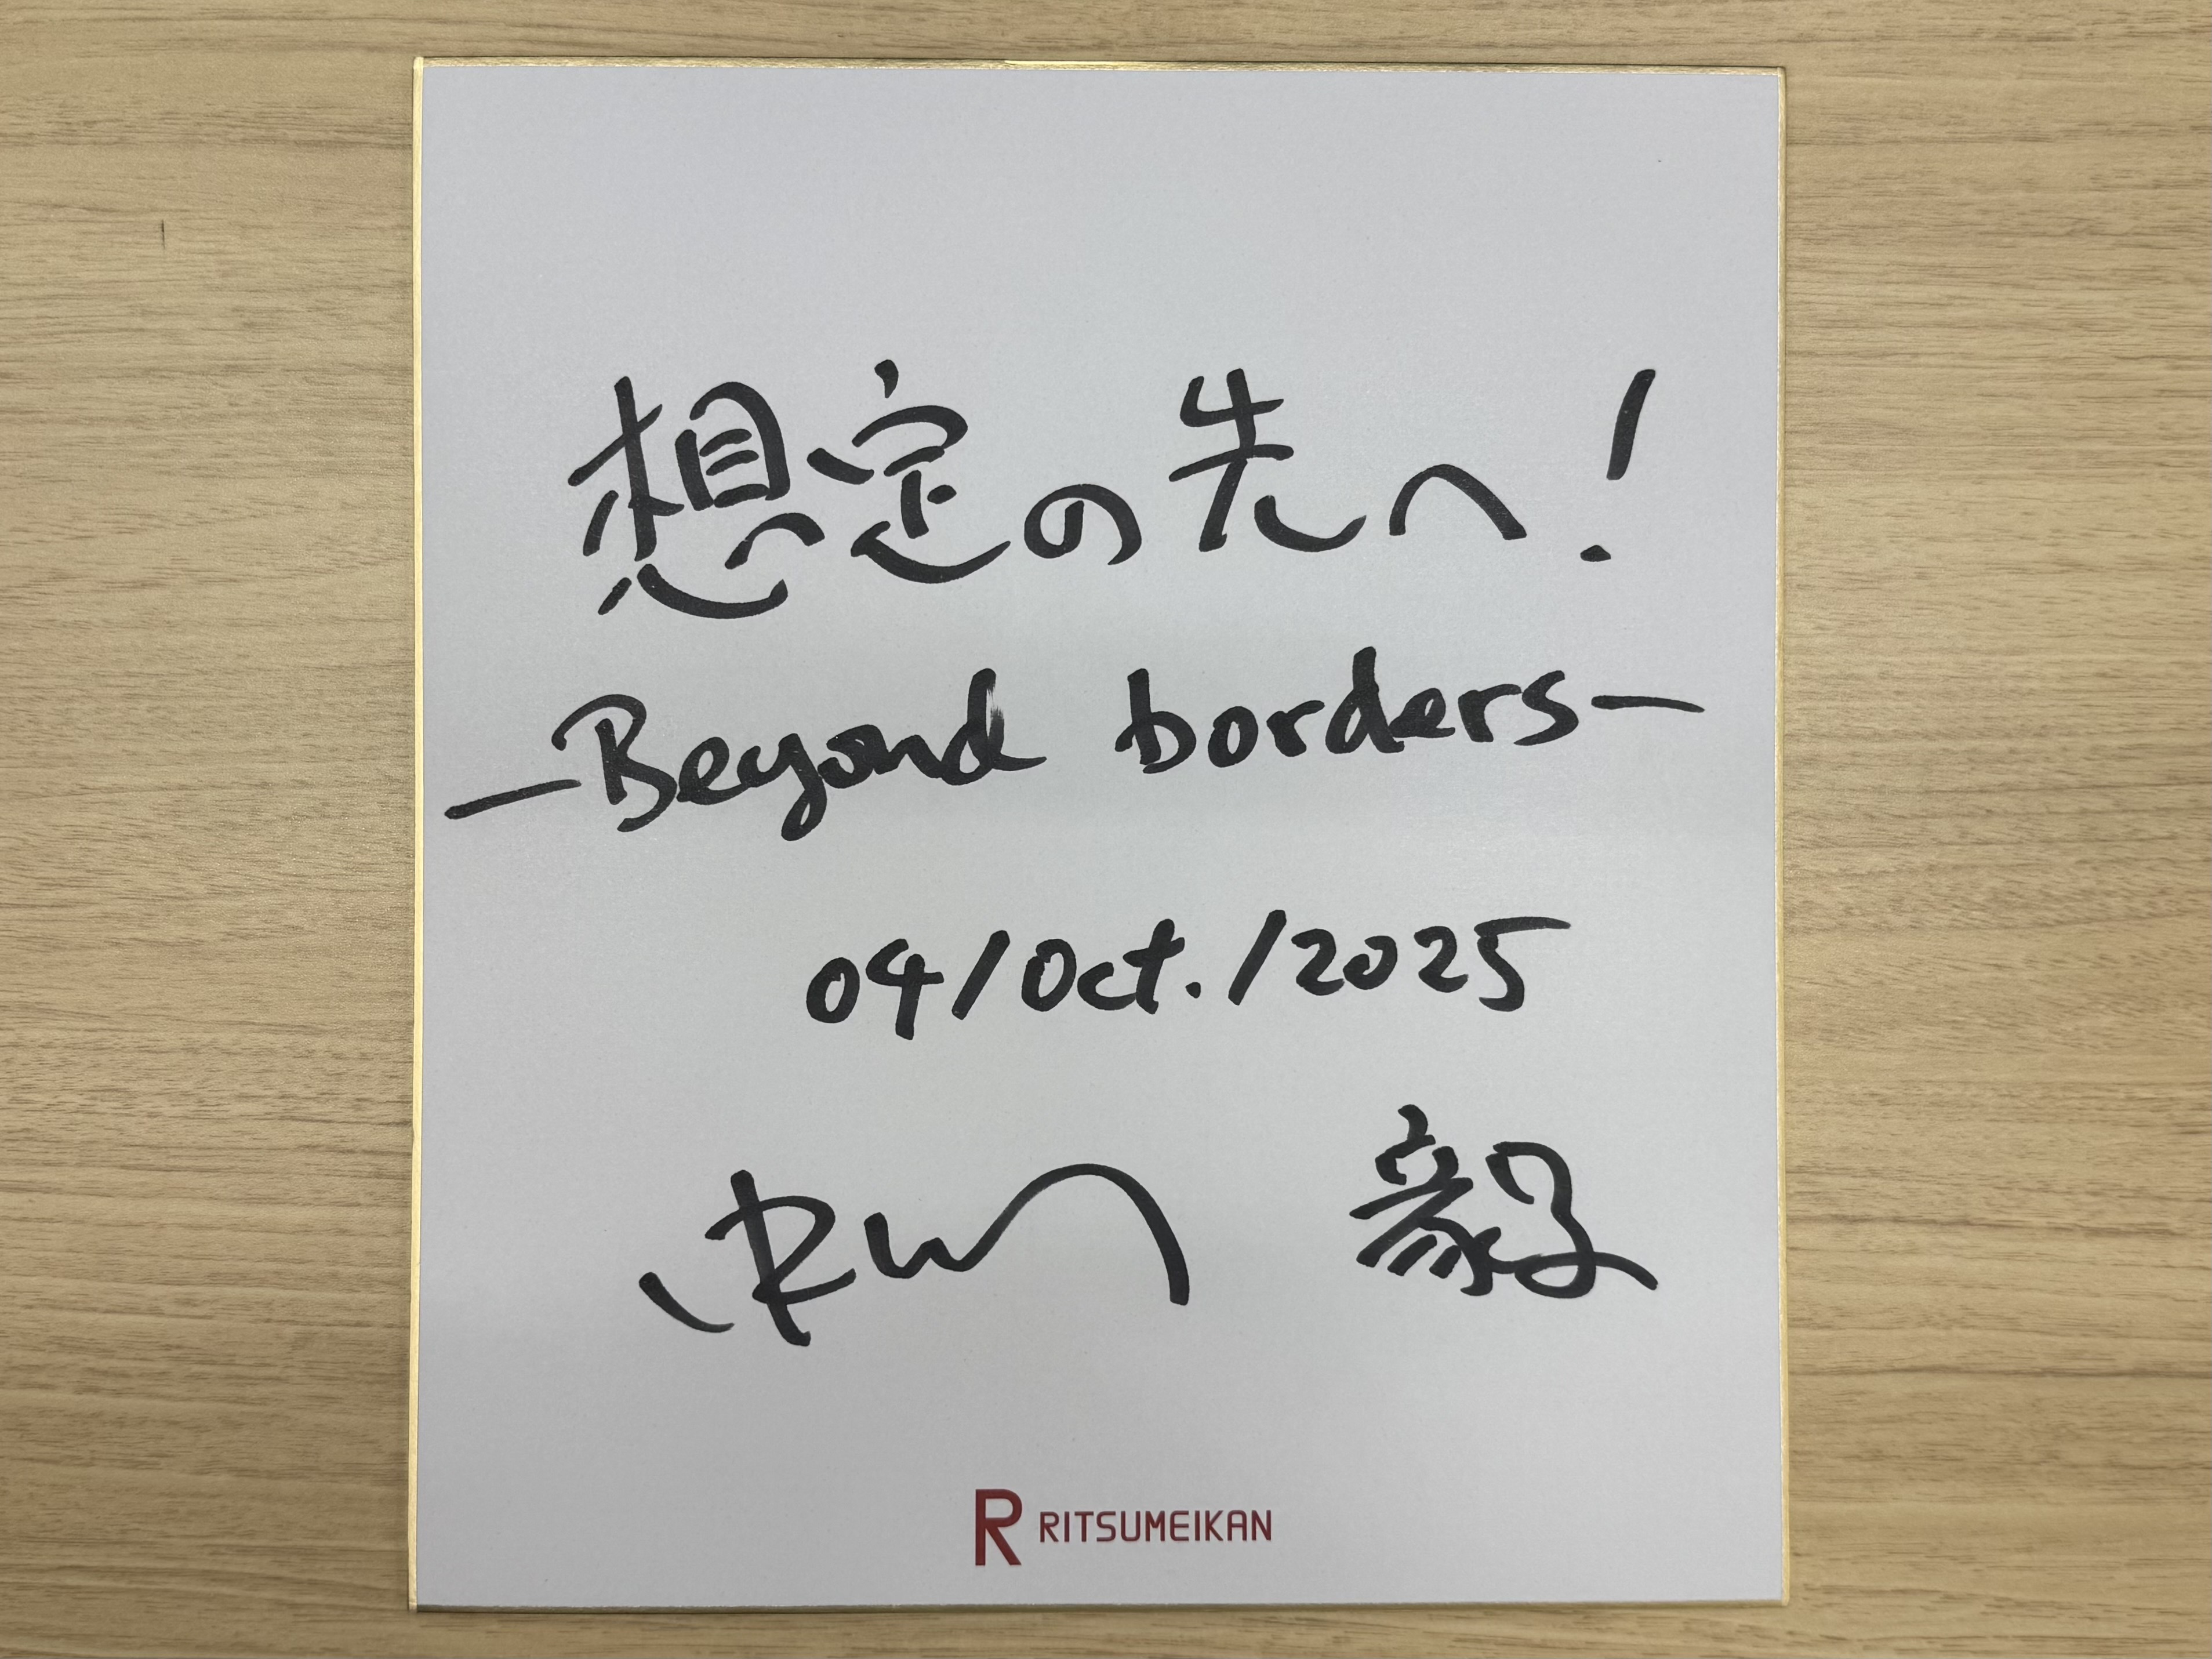 想定の先へ!
-Beyond borders-
04/Oct./2025
毅
R RITSUMEIKAN